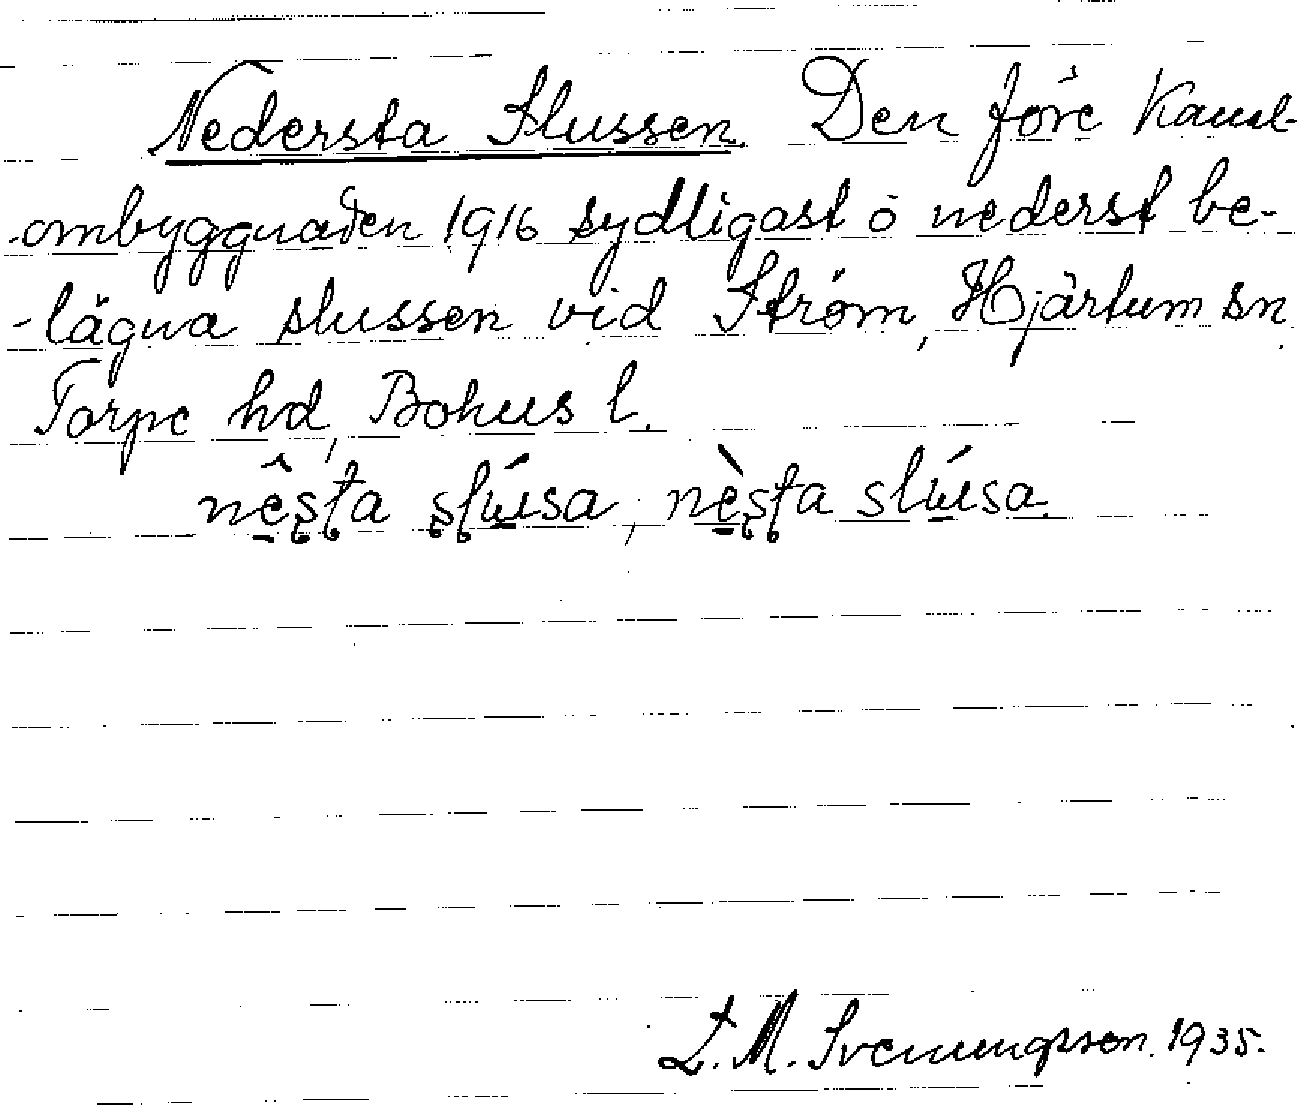 Nedersta Slussen. Den före Kanal-
-ombyggnaden 1916 sydligast o nederst be-
-lägna slussen vid Ström, Hjärtum sn
Torpe hd, Bohus l.
nê̱s̨t̨a s̨l̨ú̱sa, nè̱s̨t̨a slú̱sa.
L. M. Svenungsson. 1935.